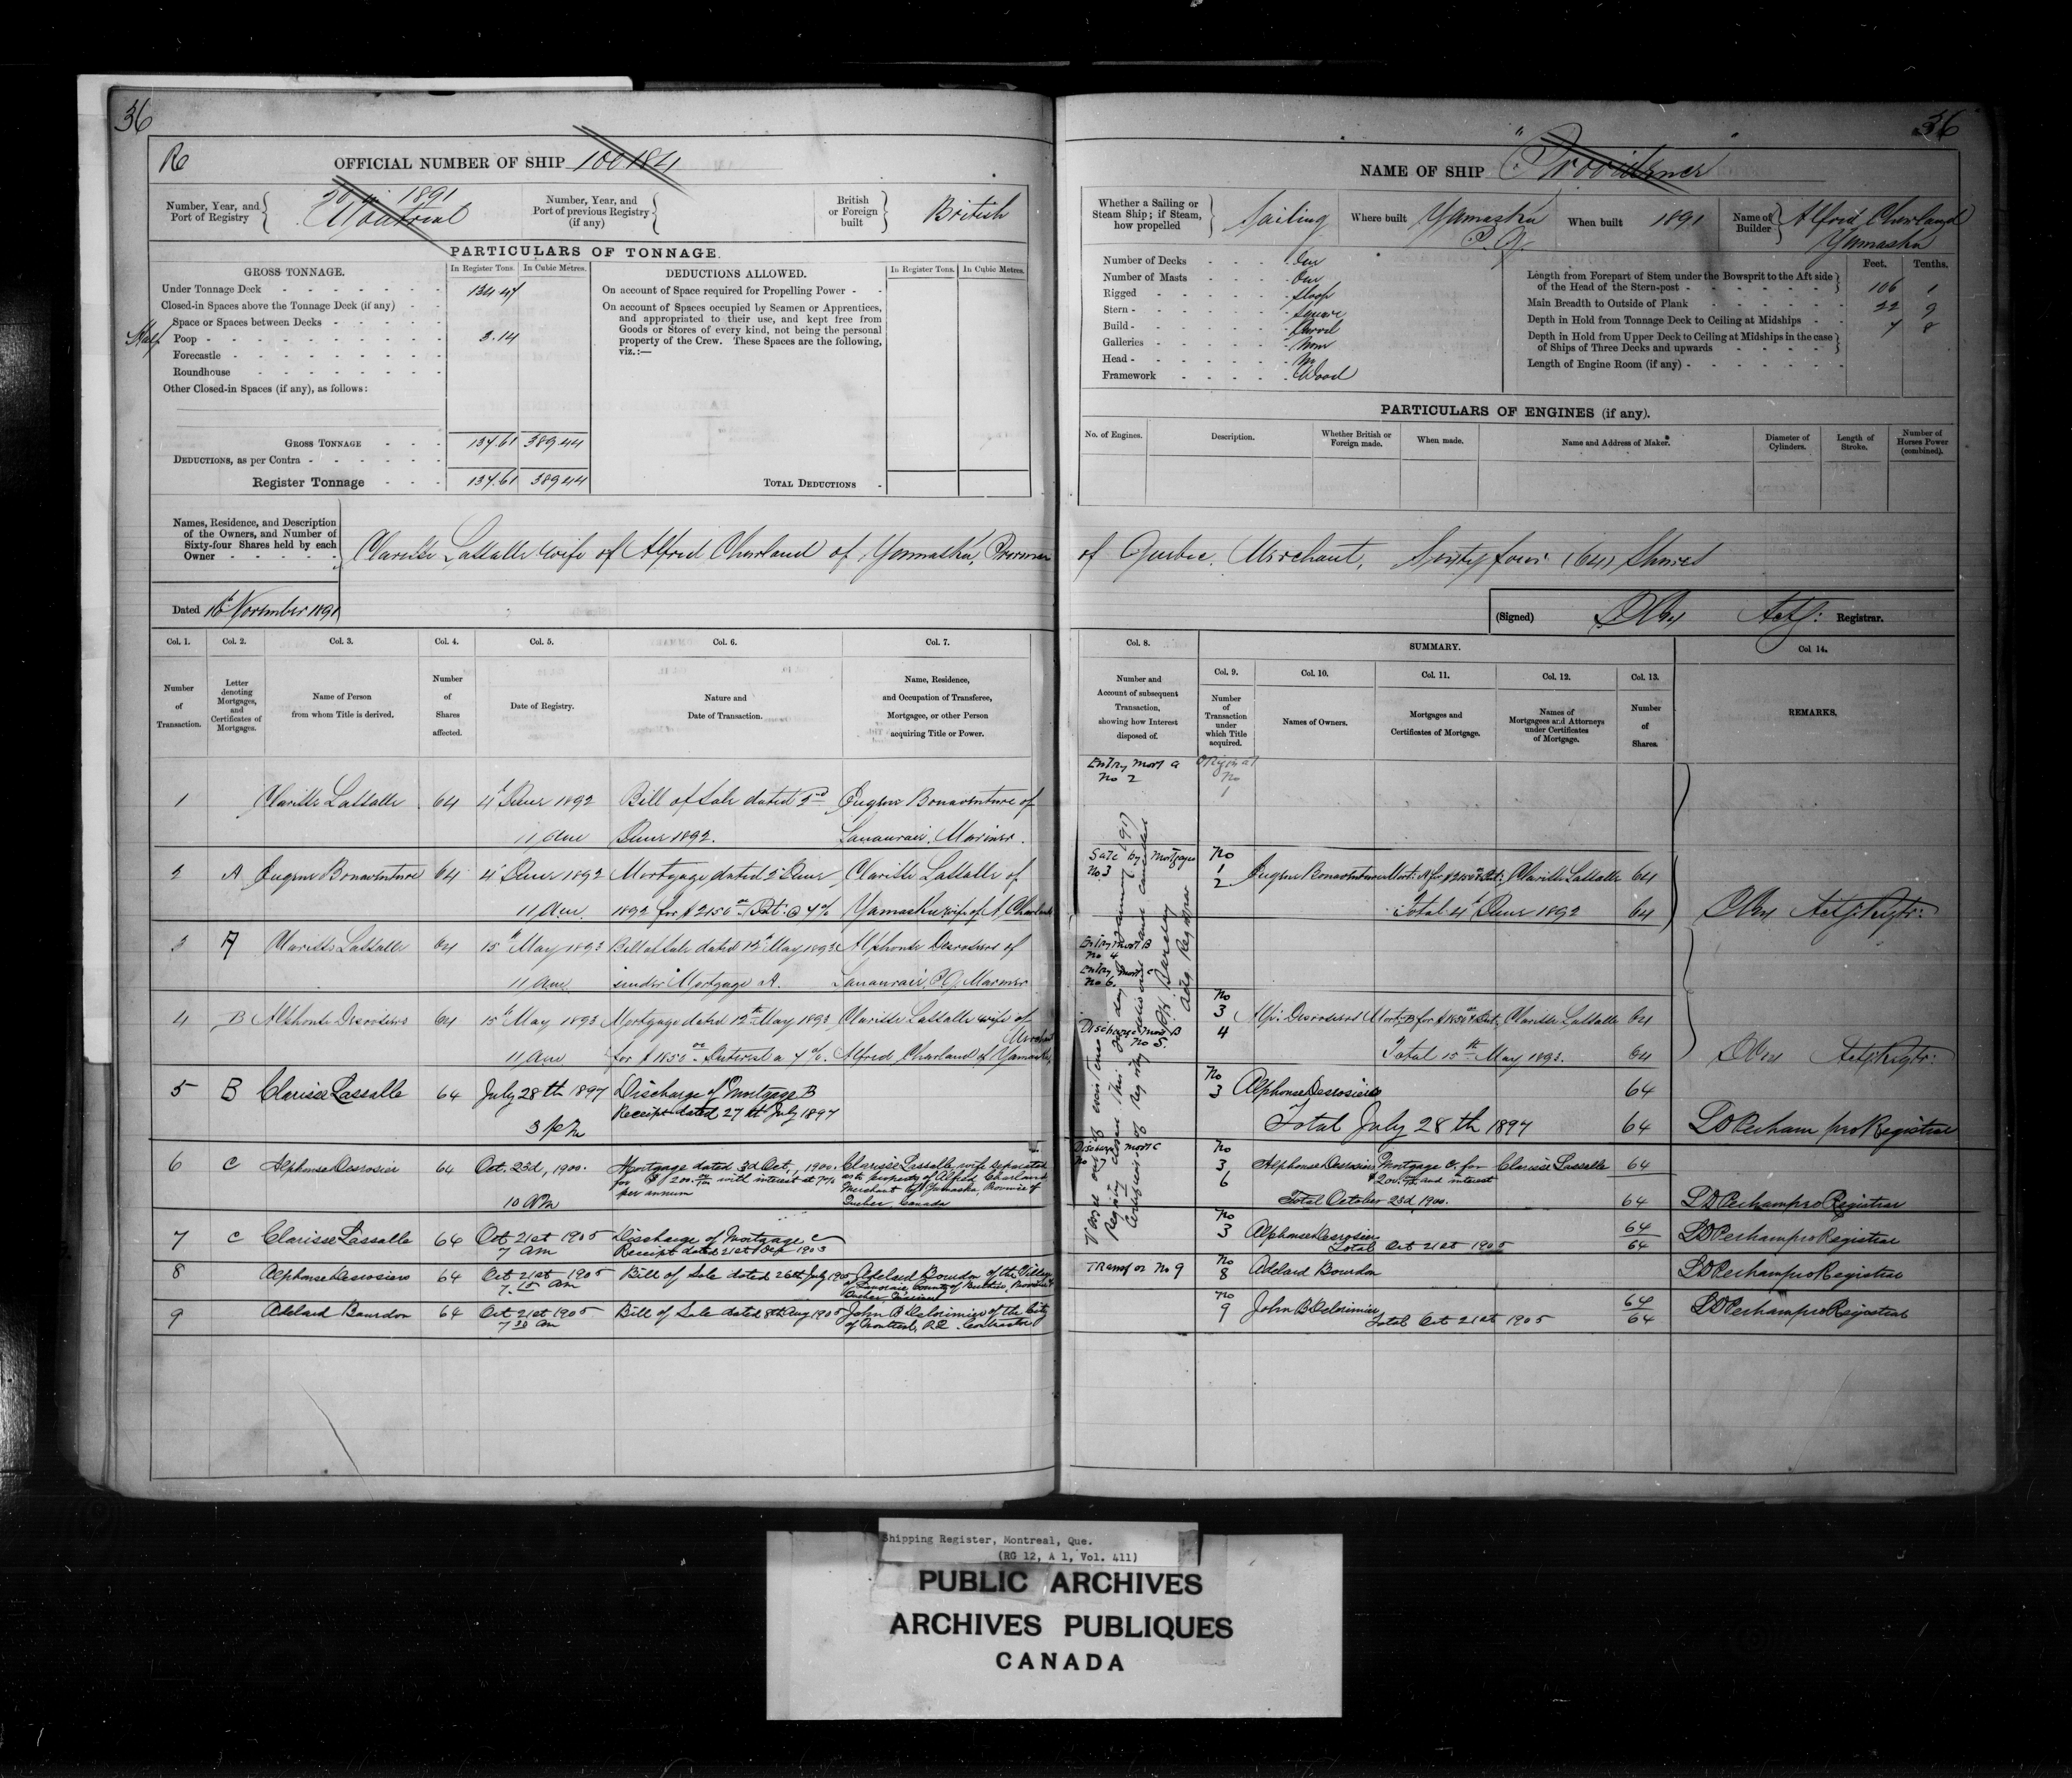 36
Rc
OFFICIAL NUMBER OF SHIP 100184
Number, Year, and Port of Registry
20 1891
Montreal
Number, Year, and Port of previous Registry (if any)
British or Foreign built
British
PARTICULARS OF TONNAGE.
GROSS TONNAGE.
In Register Tons.
In Cubic Metres.
DEDUCTIONS ALLOWED.
In Register Tons.
In Cubic Metres.
Under Tonnage Deck 134.47
Closed-in Spaces above the Tonnage Deck (if any)
Space or Spaces between Decks
Half Poop 3.14
Forecastle
Roundhouse
Other Closed-in Spaces (if any), as follows:
On account of Space required for Propelling Power
On account of Spaces occupied by Seamen or Apprentices,
and appropriated to their use, and kept free from
Goods or Stores of every kind, not being the personal
property of the Crew. These Spaces are the following,
viz.:—
GROSS TONNAGE 137.61 389.44
DEDUCTIONS, as per Contra
Register Tonnage 137.61 389.44
TOTAL DEDUCTIONS
Names, Residence, and Description
of the Owners, and Number of
Sixty-four Shares held by each
Owner
Clarisse Lassalle wife of Alfred Charland of Yamaska, Province
Dated 16 November 1891
Col. 1.
Number of Transaction.
Col. 2.
Letter denoting Mortgages, and Certificates of Mortgages.
Col. 3.
Name of Person from whom Title is derived.
Col. 4.
Number of Shares affected.
Col. 5.
Date of Registry.
Col. 6.
Nature and Date of Transaction.
Col. 7.
Name, Residence, and Occupation of Transferee, Mortgagee, or other Person acquiring Title or Power.
1 Clarisse Lassalle 64 4 June 1892 Bill of Sale dated 2nd Eugene Bonaventure of
11 am June 1892. Lanauraie, Mariner.
2 A Eugene Bonaventure 64 4 June 1892 Mortgage dated 2 June Clarisse Lassalle of
11 am 1892 for $2150 Int: @ 7% Yamaska wife of A Charland
3 A Clarisse Lassalle 64 15th May 1893 Bill of Sale dated 12th May 1893 Alphonse Desrosiers of
11 am under Mortgage A. Lanauraie P.Q. Mariner
4 B Alphonse Desrosiers 64 15th May 1893 Mortgage dated 12th May 1893 Clarisse Lassalle wife of
Merchant
11 am for $1850 Interest a 7%. Alfred Charland of Yamaska
5 B Clarisse Lassalle 64 July 28th 1897 Discharge of Mortgage B
3 pm Receipt dated 27th July 1897
6 C Alphonse Desrosier 64 Oct. 23d, 1900. Mortgage dated 3d Oct., 1900. Clarisse Lassalle, wife separated
for $200. with interest at 7% as to property of Alfred Charland
per annum Merchant of Yamaska, Province of
10 AM Quebec, Canada
7 C Clarisse Lassalle 64 Oct 21st 1905 Discharge of Mortgage C
7 am Receipt dated 21st Sep 1903
8 Alphonse Desrosiers 64 Oct 21st 1905 Bill of Sale dated 26th July 1905 Adelard Bourdon of the Village
7.15 am of Lanoraie, County of Berthier, Province of
Quebec, Mariner
9 Adelard Bourdon 64 Oct 21st 1905 Bill of Sale dated 8th Aug 1905 John B Delorimier of the City
7 30 am of Montreal, P.Q. Contractor
36
NAME OF SHIP "Providence"
Whether a Sailing or Steam Ship; if Steam, how propelled
Sailing
Where built
Yamaska
P.Q.
When built
1891
Name of Builder
Alfred Charland
Yamaska
Number of Decks One
Number of Masts One
Rigged Sloop
Stern Square
Build Carvel
Galleries None
Head No
Framework Wood
Feet. Tenths.
Length from Forepart of Stem under the Bowsprit to the Aft side
of the Head of the Stern-post 106 1
Main Breadth to Outside of Plank 22 9
Depth in Hold from Tonnage Deck to Ceiling at Midships 7 8
Depth in Hold from Upper Deck to Ceiling at Midships in the case
of Ships of Three Decks and upwards
Length of Engine Room (if any)
PARTICULARS OF ENGINES (if any).
No. of Engines.
Description.
Whether British or Foreign made.
When made.
Name and Address of Maker.
Diameter of Cylinders.
Length of Stroke.
Number of Horses Power (combined).
of Quebec, Merchant, Sixty four (64) Shares
(Signed) Actg: Registrar.
Col. 8.
Number and Account of subsequent Transaction, showing how Interest disposed of.
SUMMARY.
Col. 9.
Number of Transaction under which Title acquired.
Col. 10.
Names of Owners.
Col. 11.
Mortgages and Certificates of Mortgage.
Col. 12.
Names of Mortgagees and Attorneys under Certificates of Mortgage.
Col. 13.
Number of Shares.
Col. 14.
REMARKS.
Entry Mort A
No 2
Original
No
1
Sale by Mortgagee
No. 3
No
1
2
Eugene Bonaventure Mort: A for $2150 & Int: Clarisse Lassalle 64
Total 4 June 1892 64
Actg: Regtr:
Entry Mort B
No 4
Entry Mort C
No 6.
Discharge Mort B
No 5.
No
3
4
Alp: Desrosiers Mort. B for $1850 & Int. Clarisse Lassalle 64
Total 15th May 1893. 64
Actg: Regtr:
No
3 Alphonse Desrosiers 64
Total July 28th 1897 64 pro Registrar
Discharge Mort C
No 7
No
3
6
Alphonse Desrosiers Mortgage C. for Clarisse Lassalle 64
$200. and interest
Total October 23d 1900. 64 pro Registrar
No
3 Alphonse Desrosiers 64
Total Oct 21st 1905 64 pro Registrar
Transfer No 9
No
8 Adelard Bourdon pro Registrar
No
9 John B Delorimier 64
Total Oct 21st 1905 64 pro Registrar
Shipping Register, Montreal, Que.
(RG 12, A 1, Vol. 411)
PUBLIC ARCHIVES
ARCHIVES PUBLIQUES
CANADA